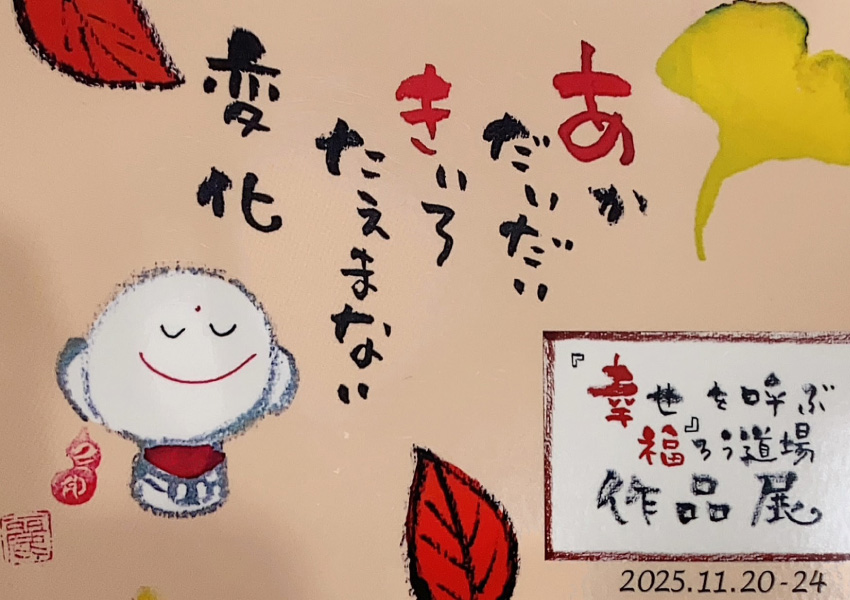 あか
だいだい
きいろ
たえまない
変化
『幸せを呼ぶ
福』ろう道場
作品展
2025.11.20-24